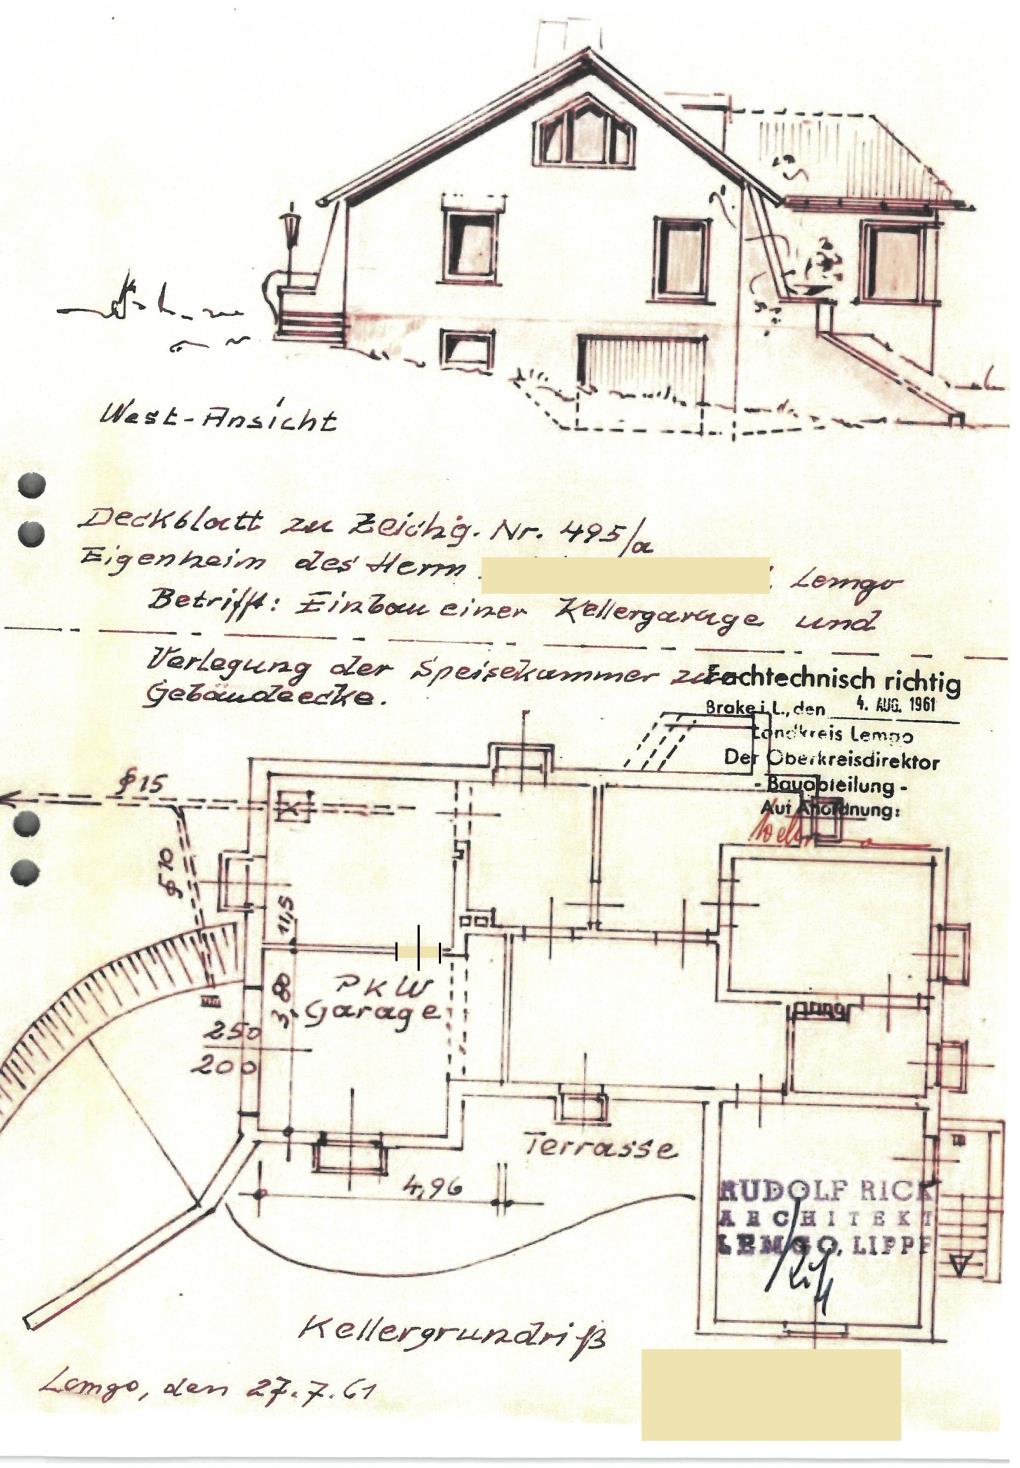 West-Ansicht
Deckblatt zu Zeichg. Nr. 495/a
Eigenheim des Herrn Lemgo
Betrifft: Einbau einer Kellergarage und
Verlegung der Speisekammer zur
Gebäudeecke.
Fachtechnisch richtig
Brake i. L., den 4. AUG. 1961
Landkreis Lemgo
Der Oberkreisdirektor
- Bauabteilung -
Auf Anordnung:
∮15
∮10
11,5
PKW
Garage
3,80
250
200
Terrasse
4,96
RUDOLF RICK
ARCHITEKT
LEMGO, LIPPE
Kellergrundriß
Lemgo, den 27.7.61